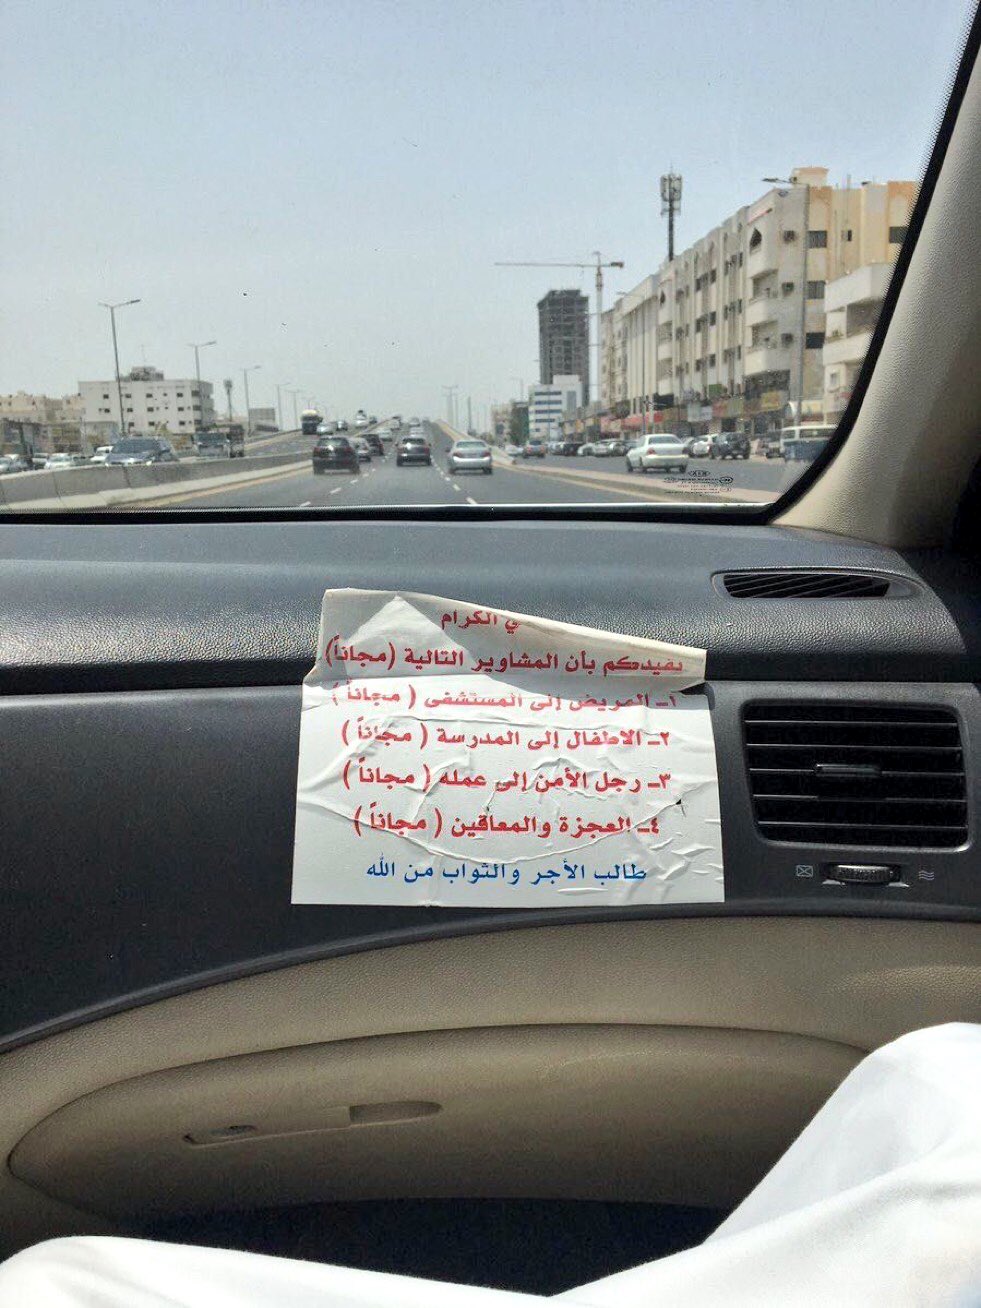 ي الكرام
يفيدكم بأن المشاوير التالية (مجاناً)
١- المريض إلى المستشفى ( مجاناً )
٢- الاطفال إلى المدرسة ( مجاناً )
٣- رجل الأمن إلى عمله ( مجاناً )
٤- العجزة والمعاقين ( مجاناً )
طالب الأجر والثواب من الله